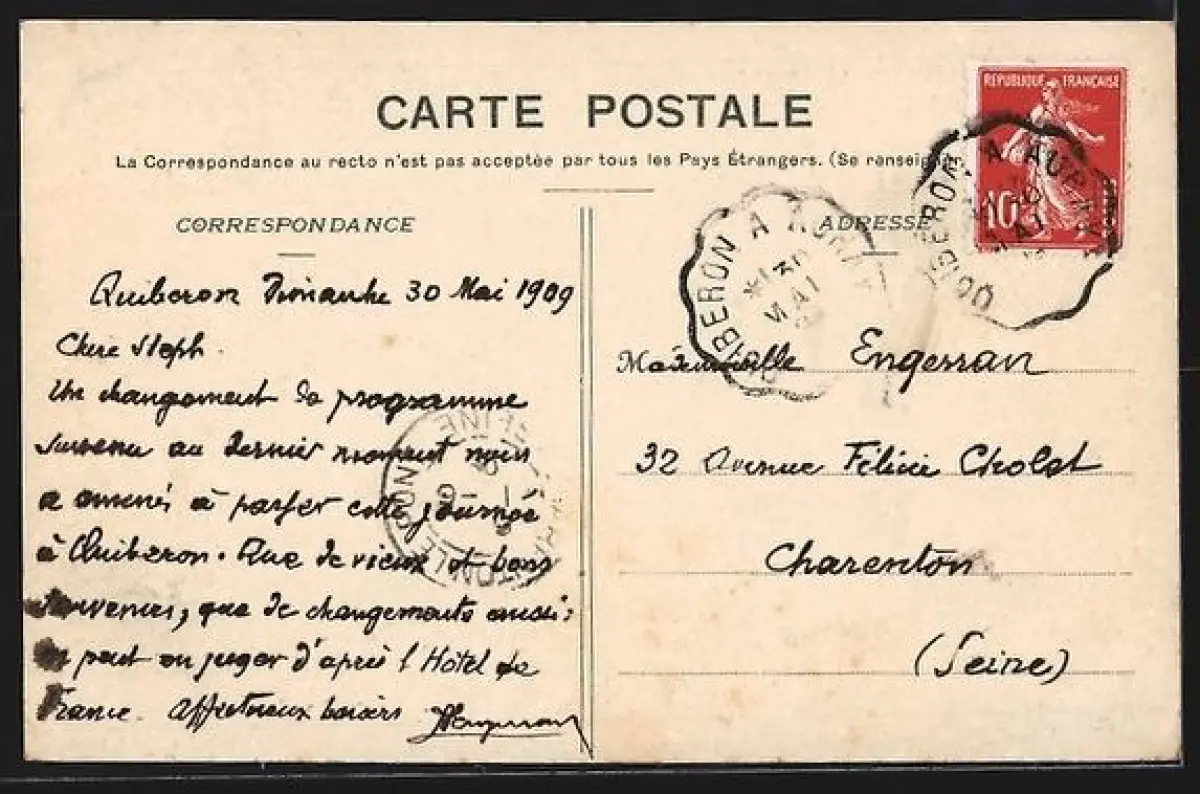 CARTE POSTALE
La Correspondance au recto n'est pas acceptée par tous les Pays Étrangers. (Se renseig
CORRESPONDANCE
Quiberon Dimanche 30 Mai 1909
Chère Steph.
Un changement de programme
survenu au dernier moment nous
a amenés à passer cette journée
à Quiberon. Que de vieux et bons
souvenirs, que de changements aussi;
on peut en juger d'après l'Hôtel de
France. Affectueux baisers
ADRESSE
Mademoiselle Engerran
32 Avenue Félicie Cholet
Charenton
(Seine)
RÉPUBLIQUE FRANÇAISE
10
QUIBERON A AURAY
30
MAI
QUIBERON A AURAY
30
MAI
CHARENTON-LE-PONT
SEINE